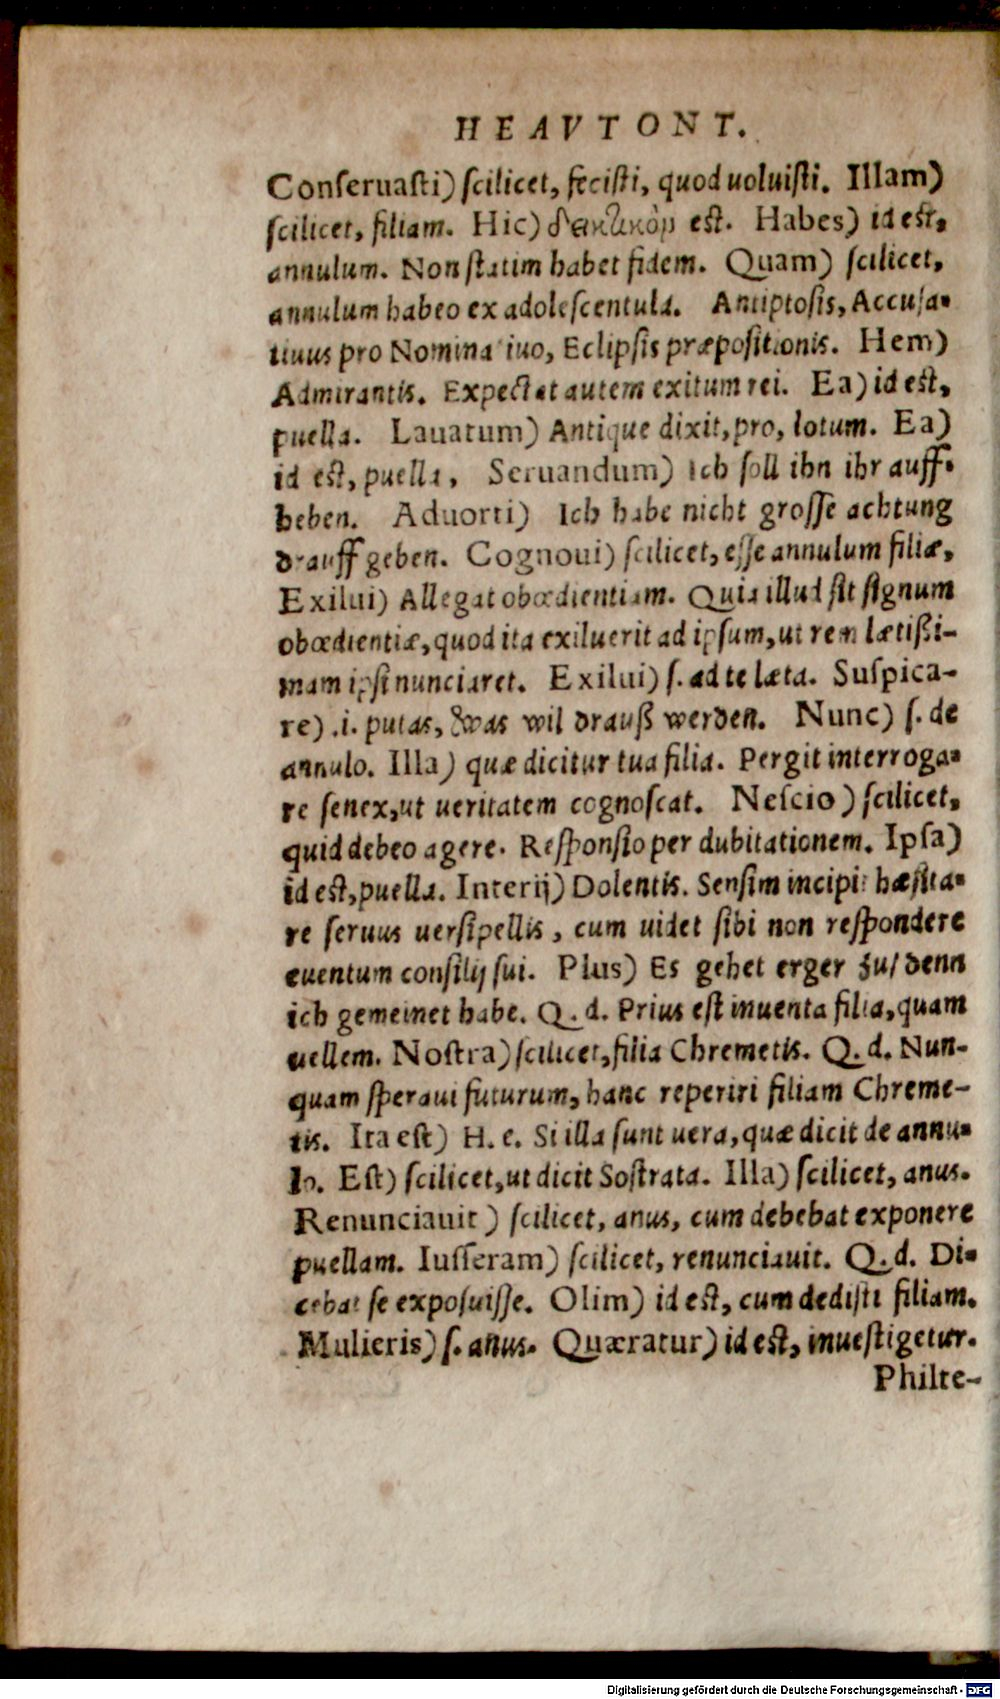 HEAVTONT.
Conſeruaſti) ſcilicet, feciſti, quod uoluiſti. Illam)
ſcilicet, filiam. Hic) δεικτικὸν est. Habes) id est,
annulum. Non ſtatim habet fidem. Quam) ſcilicet,
annulum habeo ex adoleſcentula. Antiptoſis, Accuſa-
tiuus pro Nominatiuo, Eclipſis præpoſitionis. Hem)
Admirantis. Expectat autem exitum rei. Ea) id eſt,
puella. Lauatum) Antique dixit, pro, lotum. Ea)
id eſt, puella. Seruandum) Ich ſoll ihn ihr auff-
heben. Aduorti) Ich habe nicht groſſe achtung
drauff geben. Cognoui) ſcilicet, eſſe annulum filiæ,
Exilui) Allegat obœdientiam. Quia illud ſit ſignum
obœdientiæ, quod ita exiluerit ad ipſum, ut rem lætißi-
mam ipſi nunciaret. Exilui) ſ. ad te læta. Suſpica-
re) .i. putas, was wil drauß werden. Nunc) ſ. de
annulo. Illa) quæ dicitur tua filia. Pergit interroga-
re ſenex, ut ueritatem cognoſcat. Neſcio) ſcilicet,
quid debeo agere. Reſponſio per dubitationem. Ipſa)
id eſt, puella. Interij) Dolentis. Senſim incipit hæſita-
re ſeruus uerſipellis, cum uidet ſibi non reſpondere
euentum conſilij ſui. Plus) Es gehet erger zu/ denn
ich gemeinet habe. Q. d. Prius eſt inuenta filia, quam
uellem. Noſtra) ſcilicet, filia Chremetis. Q. d. Nun-
quam ſperaui futurum, hanc reperiri filiam Chreme-
tis. Ita eſt) H. e. Si illa ſunt uera, quæ dicit de annu-
lo. Eſt) ſcilicet, ut dicit Soſtrata. Illa) ſcilicet, anus.
Renunciauit) ſcilicet, anus, cum debebat exponere
puellam. Iuſſeram) ſcilicet, renunciauit. Q. d. Di-
cebat ſe expoſuiſſe. Olim) id eſt, cum dediſti filiam.
Mulieris) ſ. anus. Quæratur) id eſt, inueſtigetur.
Philte-
Digitalisierung gefördert durch die Deutsche Forschungsgemeinschaft - DFG